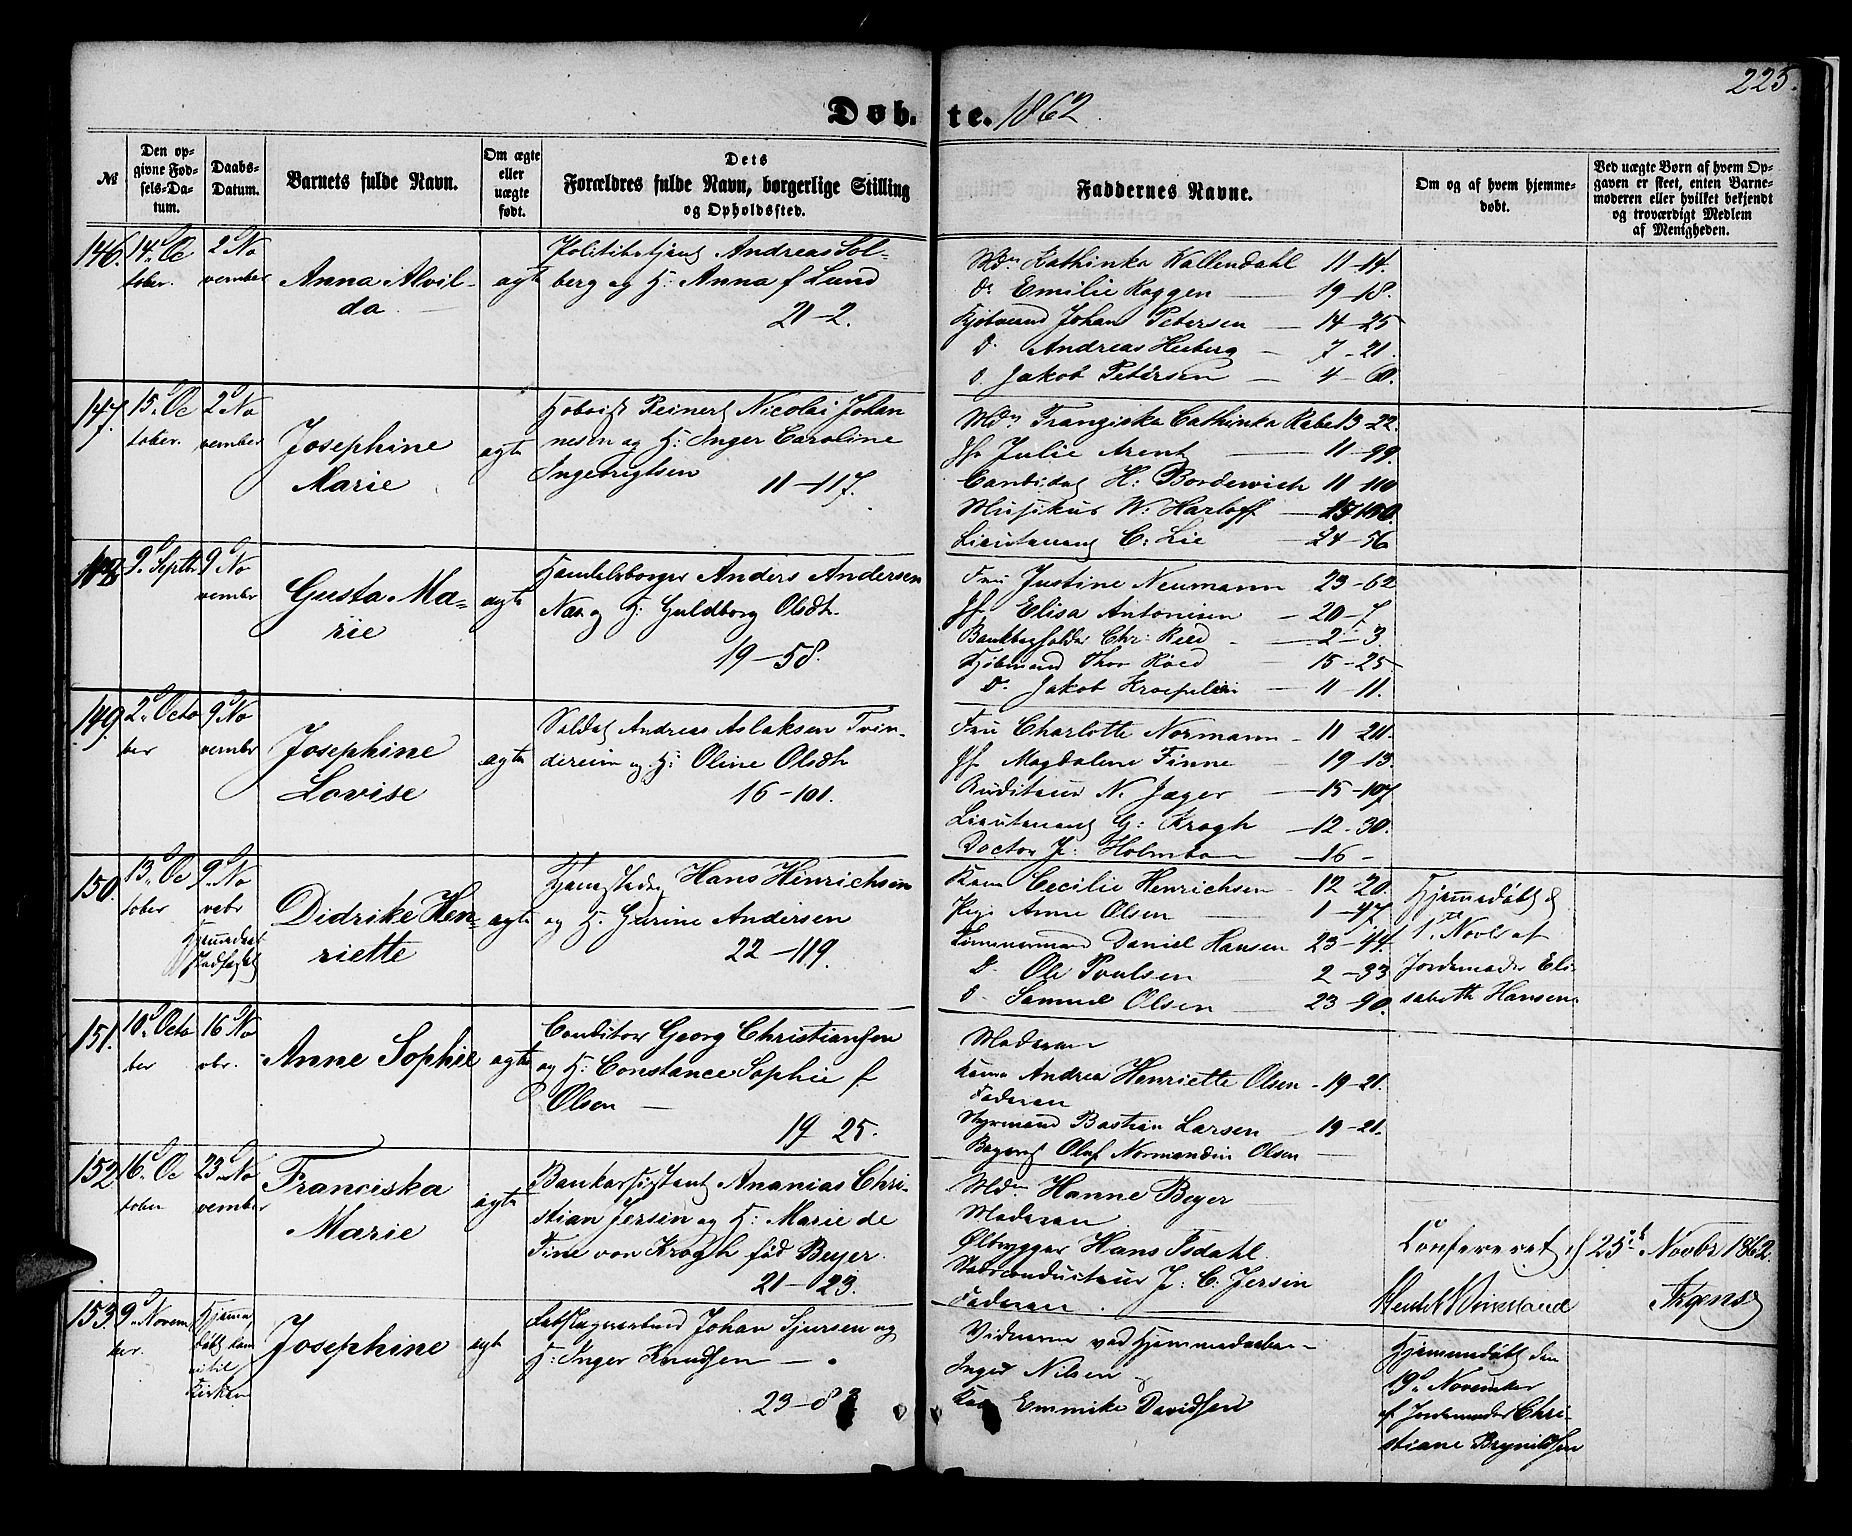 225.
Døbte. 1862.
№
Den opgivne Fødsels-Datum.
Daabs-Datum.
Barnets fulde Navn.
Om ægte eller uægte født.
Dets Forældres fulde Navn, borgerlige Stilling og Opholdssted.
Faddernes Navne.
Om og af hvem hjemmedøbt.
Ved uægte Børn af hvem Opgaven er skeet, enten Barnemoderen eller hvilket bekjendt og troværdigt Medlem af Menigheden.
146. 14. Oc
tober.
2 No
vember
Anna Alvil-
da
ægt
Politibetjent Andreas Sol-
berg og H: Anna f Lund
21-2.
Md. Kathinka Kallendahl 11-14.
D. Emilie Kaggen 19-18.
Kjøbmand Johan Petersen 14-25
D. Andreas Heiberg 7-21.
D. Jakob Petersen 4-60.
147. 15. Oc
tober.
2 No
vember
Josephine
Marie
ægte
Hoboist Reinert Nicolai Johan
nesen og H: Inger Caroline
Ingebrigtsen
11-117.
Md. Franziska Cathinka Rabe 13-22.
Jf. Julie Arent 11-99.
Candidat H: Bordewich 11-110
Musikus W: Harloff
Lieutenant C: Lie 24-56
148. 9. Septbr
9. No
vembr
Gusta Ma-
rie
ægte
Handelsborger Anders Andersen
Næs og H: Guldborg Olsdtr.
19-58.
Fru Justine Neumann 23-62
Jf. Elisa Antonisen 20-7
Bankbogholder Chr: 2-3
Kjøbmand Thor Röed 15-25
D. Jakob Kroepelin 11-11.
149. 2. Octo
ber
9. No
vembr
Josephine
Lovise
ægte
Soldat Andreas Aslaksen Tvin-
dereim og H: Oline Olsdtr
16-101.
Fru Charlotte Normann 11-20.
Jf. Magdalene Finne 19-13.
Auditeur N. Jæger 15-107
Lieutenant G: Krogh 12-30.
Doctor J: Holmboe 16-
150. 13. Oc
tober
9. No
vebr
Hjemmedaab
stadfæstet
Didrike Hen-
riette
ægte
Hans Hinrichsen
og H. Gurine Andersen
22-119.
Kone Cecilie Henrichsen 12-20.
Pige Anne Olsen 1-47.
Tømmermand Daniel Hansen 23-44.
D. Ole Poulsen 2-33
D. Samuel Olsen 23-90.
Hjemmedøbt d
1. Novbr af
Jordemoder Eli-
sabeth Hansen.
151. 10. Octo
ber
16 No
vbr.
Anne Sophie
ægte
Conditor Georg Christiansen
og H: Constance Sophie f
Olsen
19 25.
Moderen
Kone Andrea Henriette Olsen 19-21.
Faderen
Styrmand Bastian Larsen 19-21.
Bagersv Oluf Normandin Olsen
152. 16. Oc
tober
23. No
vember
Franciska
Marie
ægte
Bankassistent Ananias Chri-
stian Jersin og H: Marie de
Fine von Krogh fød Beyer.
21-23.
Md. Hanne Beyer
Moderen
Ølbrygger Hans Isdahl.
Stadsconducteur J: C. Jersin
Faderen
Confereret d 25de Novbr 1862.
153. 9. Novem
ber.
Hjemme
døbt
Kirken
Josephine
ægt
Johan Sjursen og
H: Inger Knudsen
23-8
Vidnerne ved Hjemmedaaben
Inger Nilsen
Kone Emmike Davidsen
Hjemmedøbt den
19. November
af Jordemoder Chri-
stiane Brynildsen